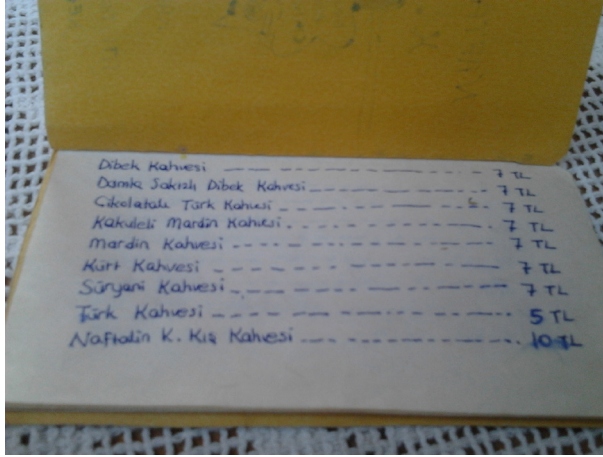 Dibek Kahvesi ---------------- 7 TL
Damla Sakızlı Dibek Kahvesi ---------------- 7 TL
Çikolatalı Türk Kahvesi ---------------- 7 TL
Kakuleli Mardin Kahvesi ---------------- 7 TL
Mardin Kahvesi ---------------- 7 TL
Kürt Kahvesi ---------------- 7 TL
Süryani Kahvesi ---------------- 7 TL
Türk Kahvesi ---------------- 5 TL
Naftalin K. Kış Kahvesi ---------------- 10 TL